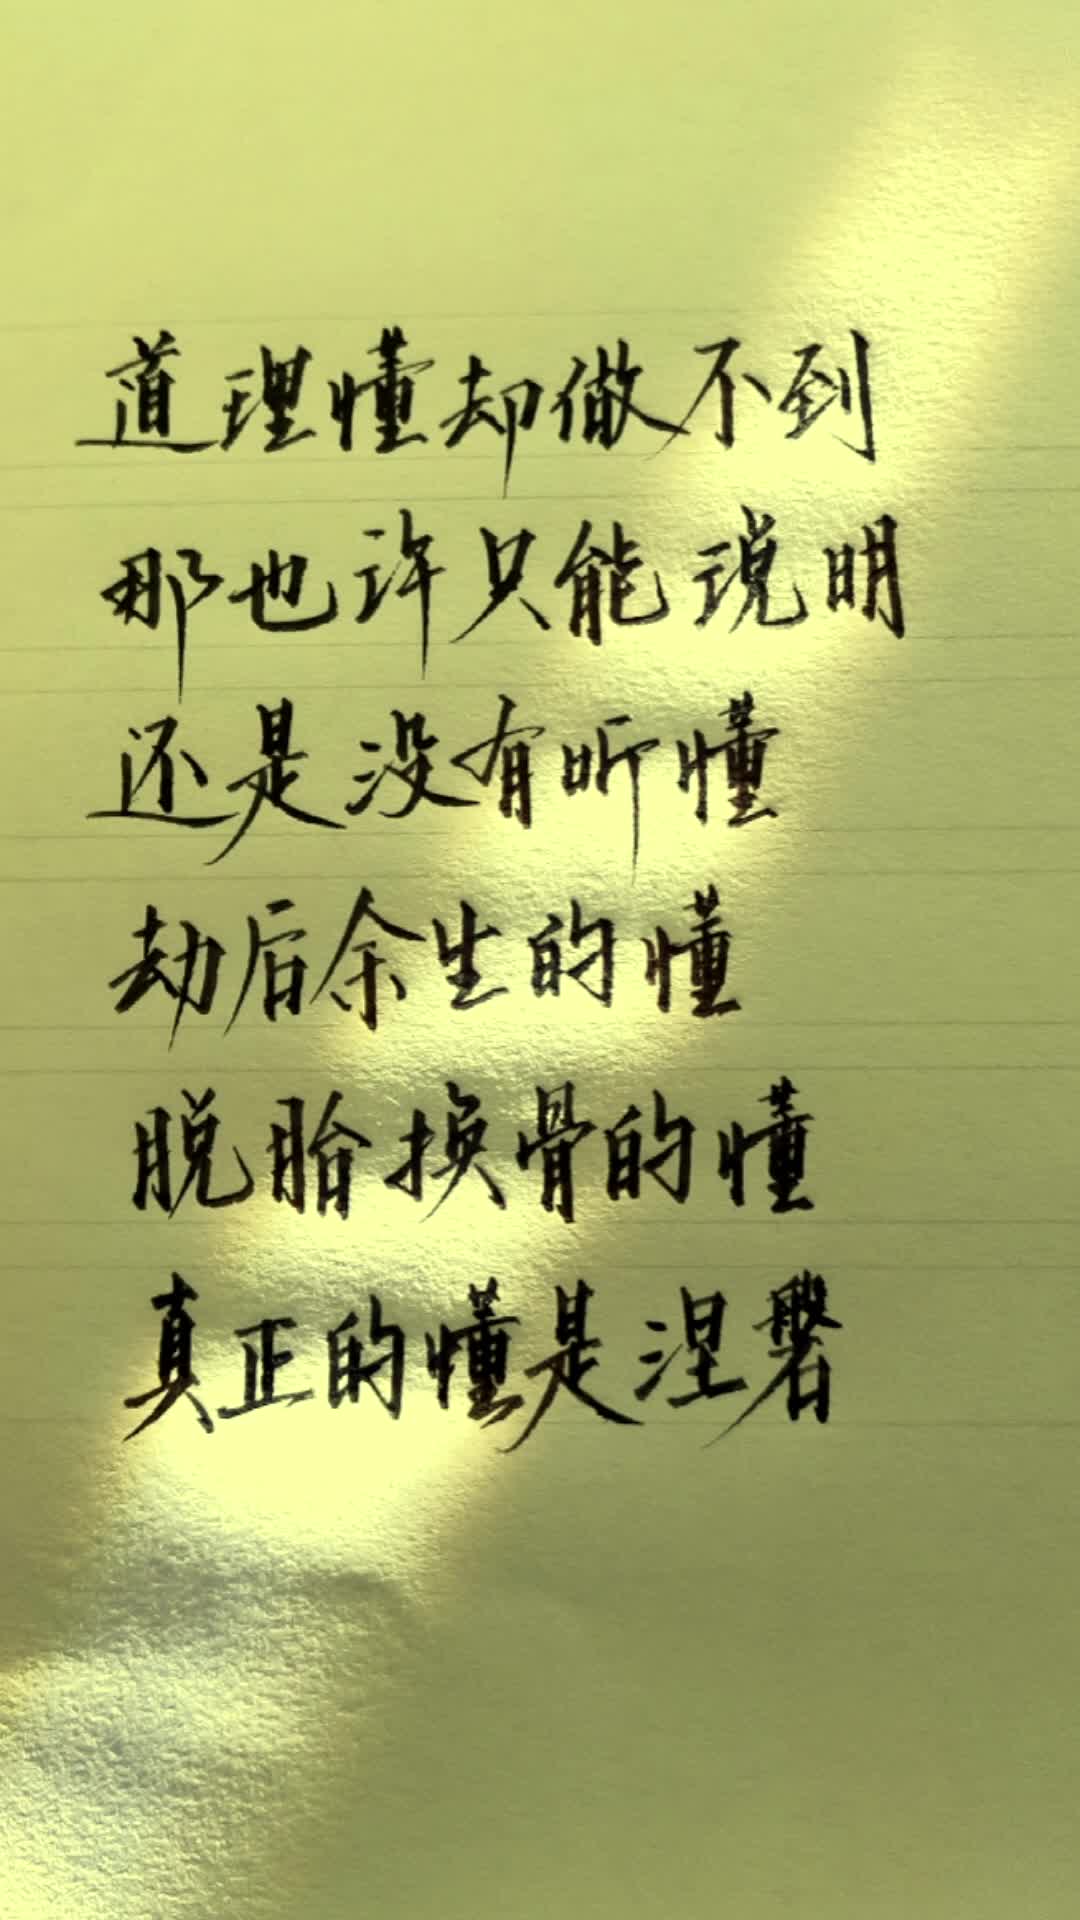 道理懂却做不到
那也许只能说明
还是没有听懂
劫后余生的懂
脱胎换骨的懂
真正的懂是涅磐